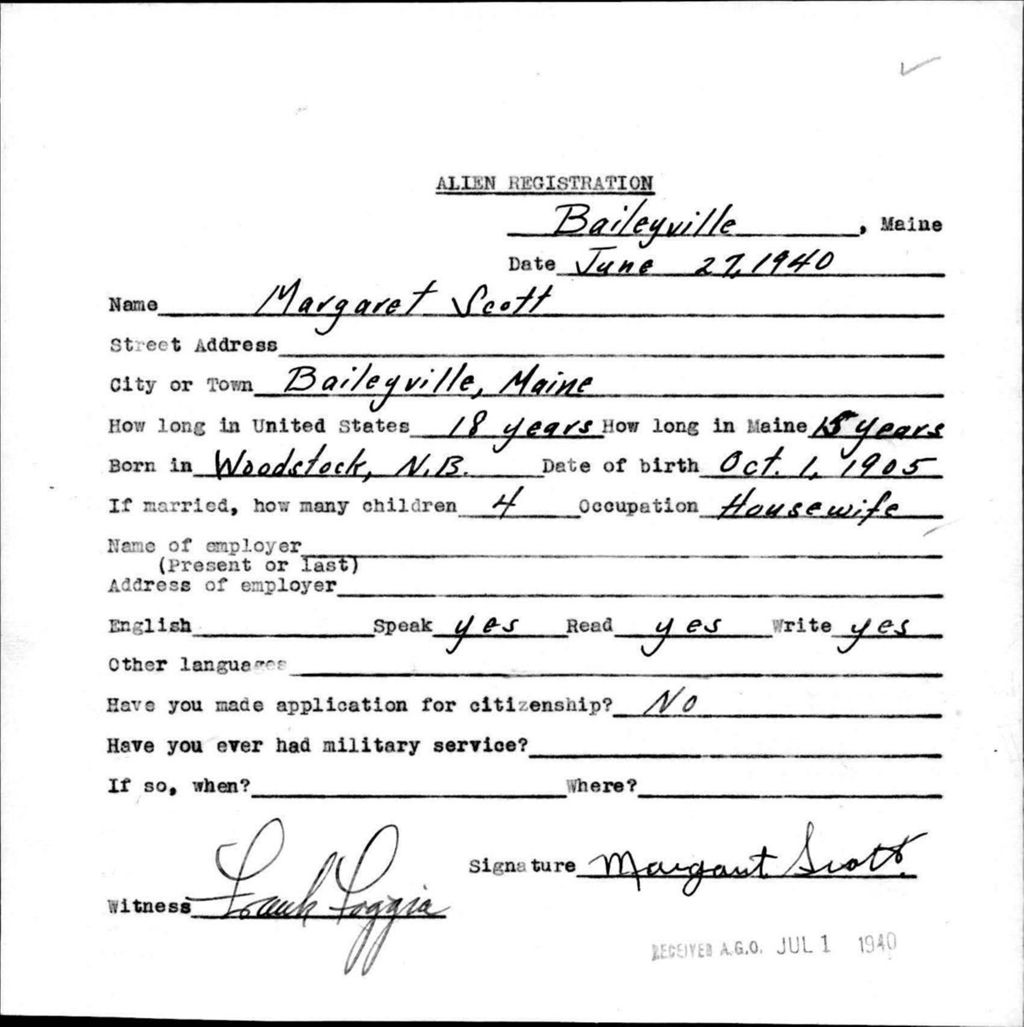 ALIEN REGISTRATION
Baileyville, Maine
Date June 27, 1940
Name Margaret Scott
Street Address
City or Town Baileyville, Maine
How long in United States 18 years How long in Maine 15 years
Born in Woodstock, N.B. Date of birth Oct. 1, 1905
If married, how many children 4 Occupation Housewife
Name of employer
(Present or last)
Address of employer
English Speak yes Read yes Write yes
Other languages
Have you made application for citizenship? No
Have you ever had military service?
If so, when? Where?
Signature Margaret Scott
Witness Frank Foggia
RECEIVED A.G.O. JUL 1 1940